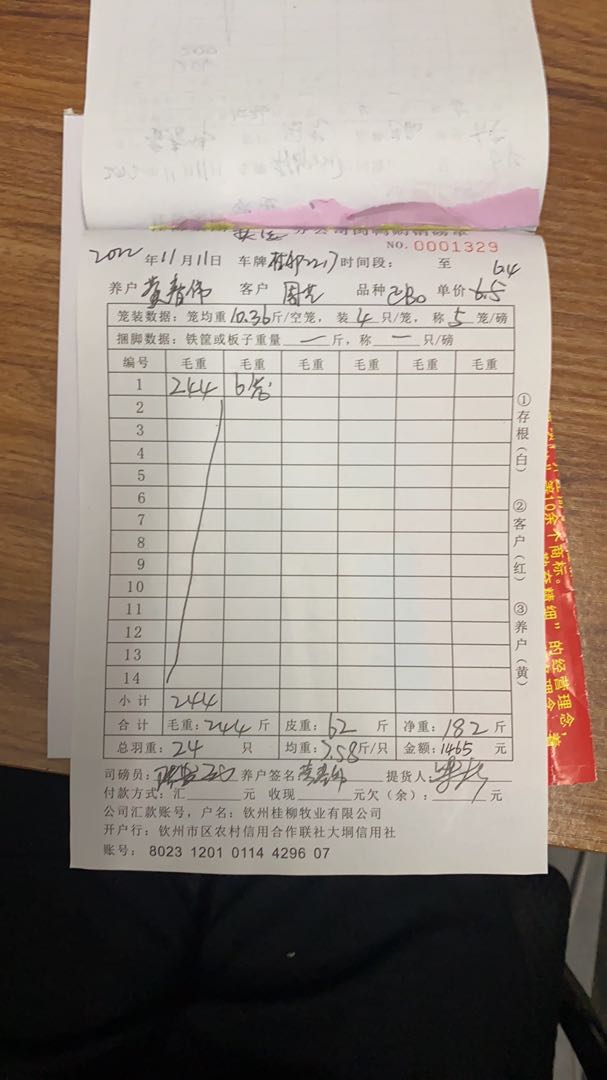 分公司肉鸭购销磅单
NO. 0001329
2022年11月11日 车牌 2217 时间段: 至 64
养户 黄春伟 客户 周艺 品种 ZB0 单价 6.5
笼装数据: 笼均重 10.36 斤/空笼, 装 4 只/笼, 称 5 笼/磅
捆脚数据: 铁筐或板子重量 — 斤, 称 — 只/磅
编号 毛重 毛重 毛重 毛重 毛重 毛重
1 244 6笼
2
3
4
5
6
7
8
9
10
11
12
13
14
小计 244
合计 毛重: 244 斤 皮重: 62 斤 净重: 182 斤
总羽重: 24 只 均重: 7.58 斤/只 金额: 1465 元
司磅员: 养户签名 黄春伟 提货人
付款方式: 汇 元 收现 元欠(余): 元
公司汇款账号, 户名: 钦州桂柳牧业有限公司
开户行: 钦州市区农村信用合作联社大垌信用社
账号: 8023 1201 0114 4296 07
①存根(白) ②客户(红) ③养户(黄)
第10余个商标。
的经营理念